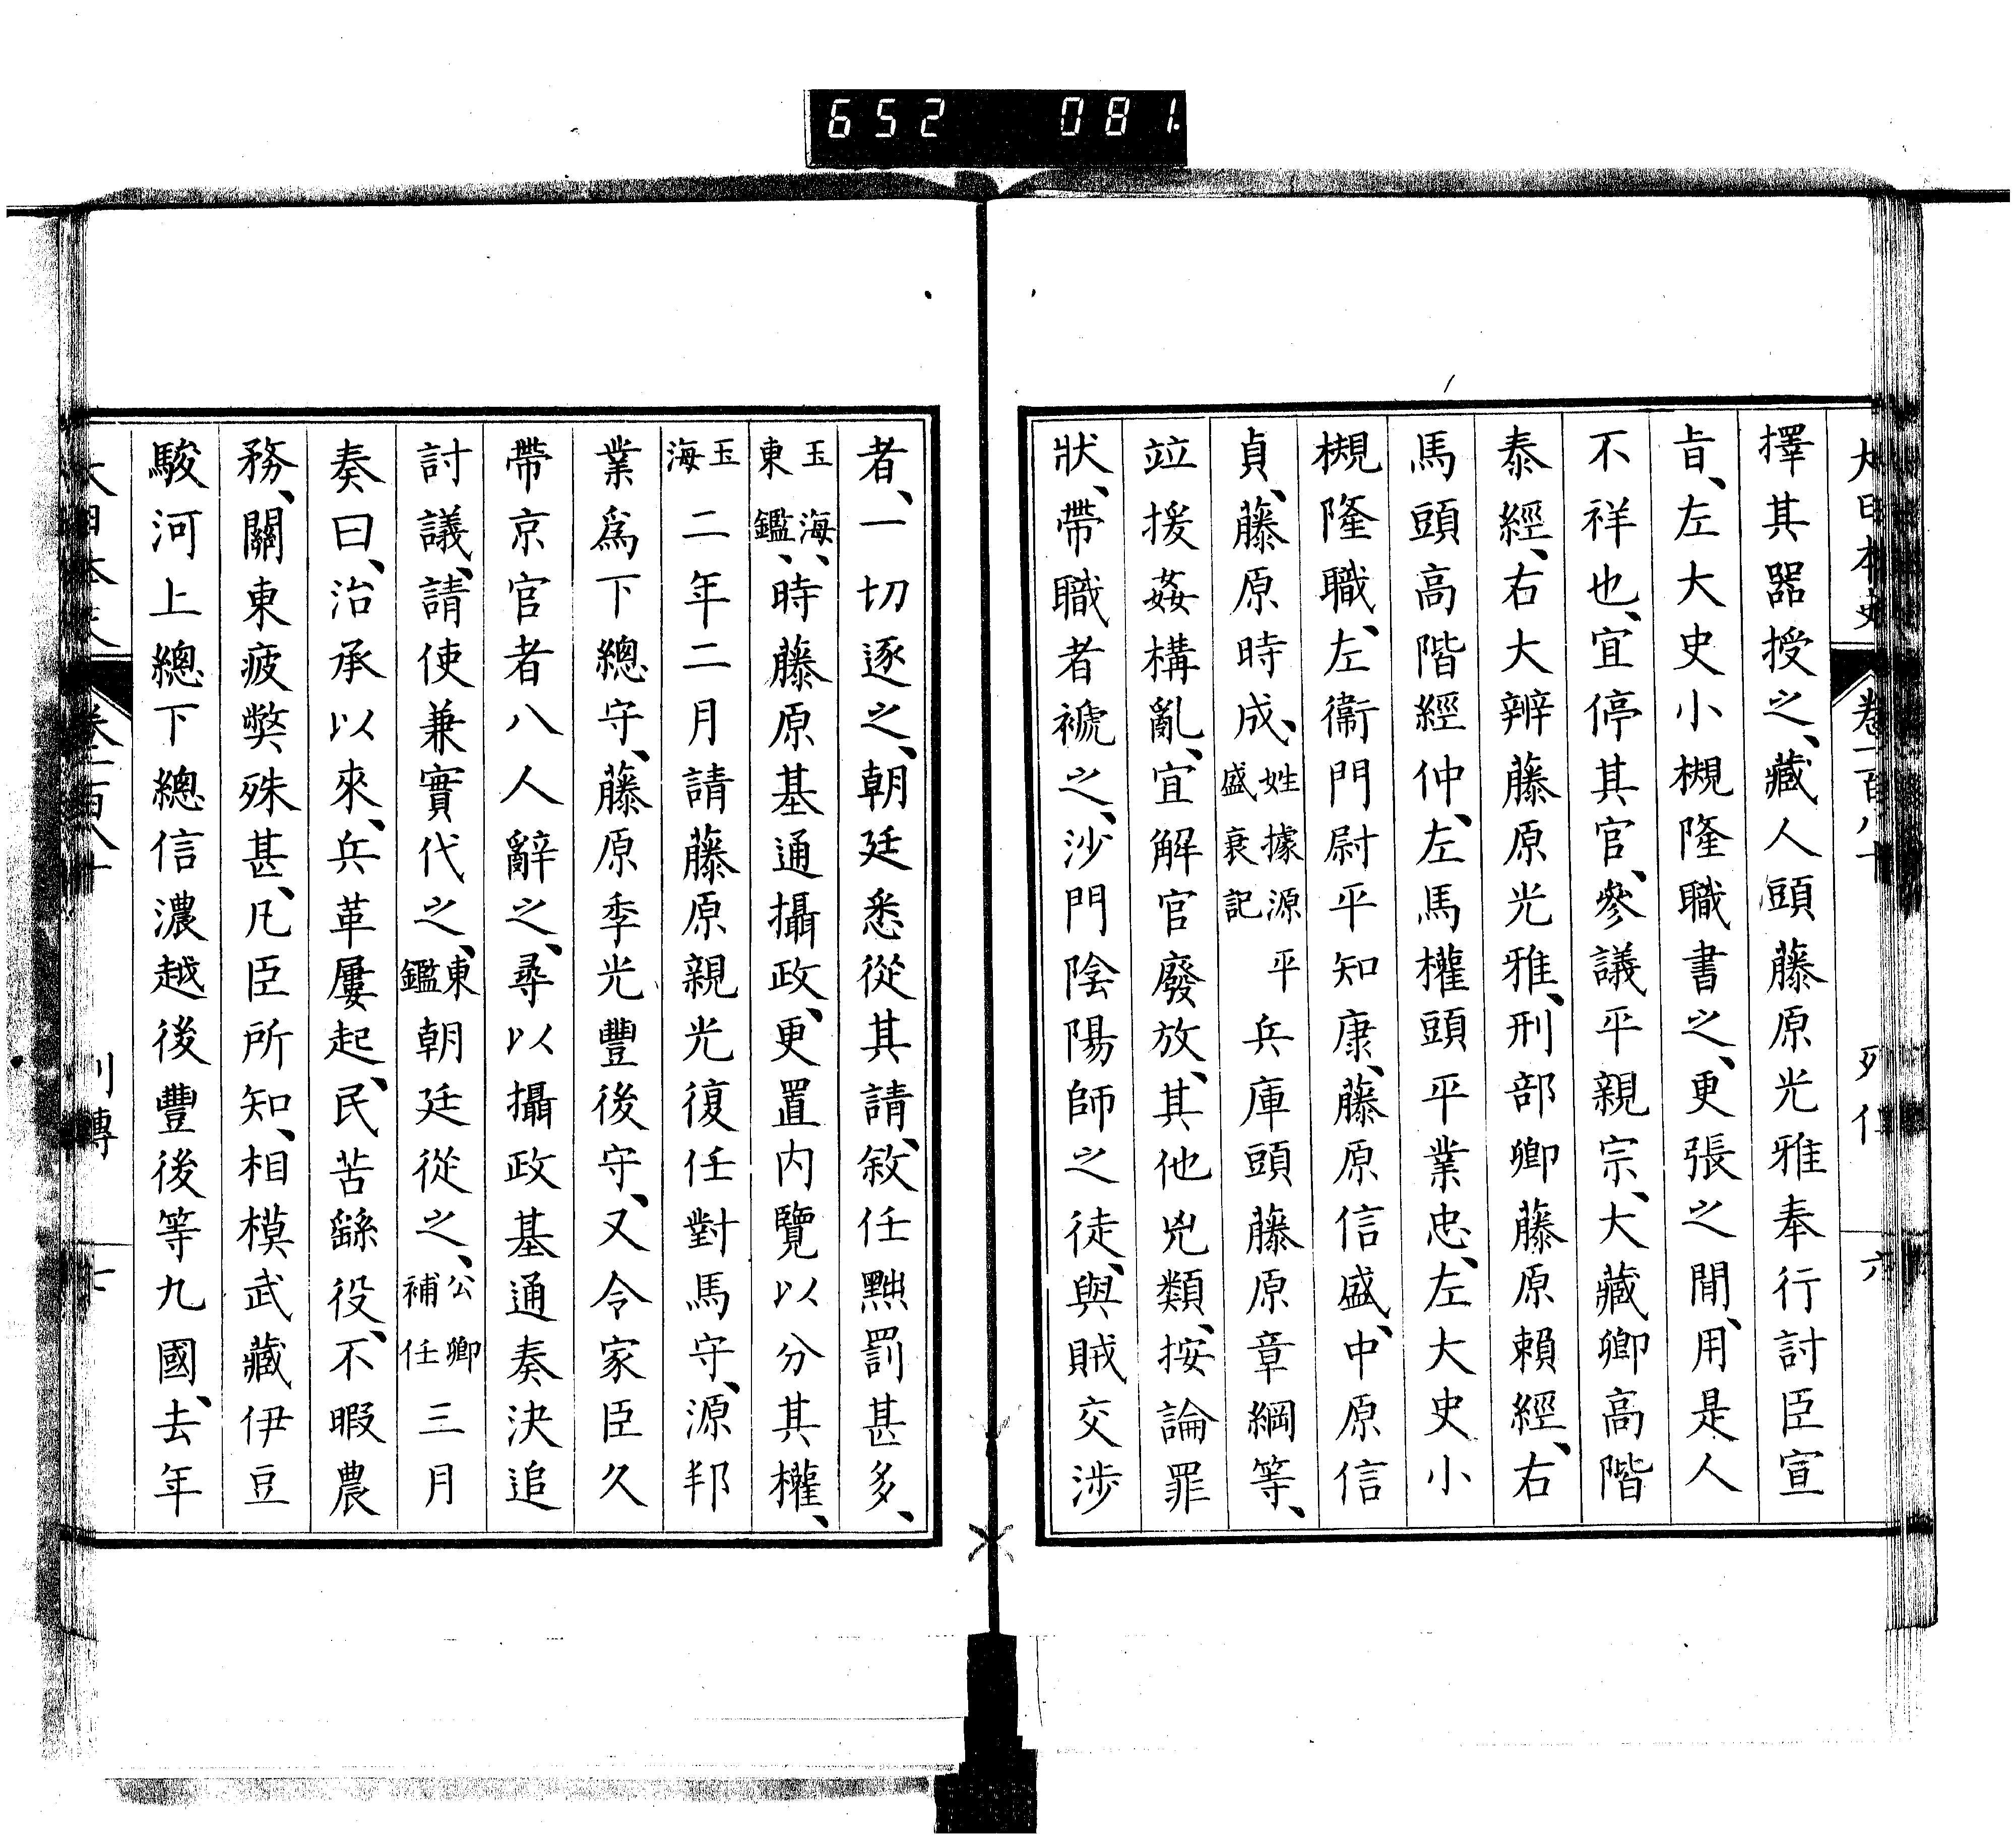 652 081.
大日本史 卷一百八十 列傳 六
擇其器授之、藏人頭藤原光雅奉行討臣宣
旨、左大史小槻隆職書之、更張之間、用是人
不祥也、宜停其官、參議平親宗、大藏卿高階
泰經、右大辨藤原光雅、刑部卿藤原賴經、右
馬頭高階經仲、左馬權頭平業忠、左大史小
槻隆職、左衞門尉平知康、藤原信盛、中原信
貞、藤原時成、姓據源平盛衰記兵庫頭藤原章綱等、
竝援姦構亂、宜解官廢放、其他兇類、按論罪
狀、帶職者褫之、沙門陰陽師之徒、與賊交涉
者、一切逐之、朝廷悉從其請、敘任黜罰甚多、
玉海、東鑑、時藤原基通攝政、更置内覽以分其權、
玉海二年二月請藤原親光復任對馬守、源邦
業爲下總守、藤原季光豐後守、又令家臣久
帶京官者八人辭之、尋以攝政基通奏決追
討議、請使兼實代之、東鑑朝廷從之、公卿補任三月
奏曰、治承以來、兵革屢起、民苦繇役、不暇農
務、關東疲弊殊甚、凡臣所知、相模武藏伊豆
駿河上總下總信濃越後豐後等九國、去年
大日本史 卷一百八十 列傳 七